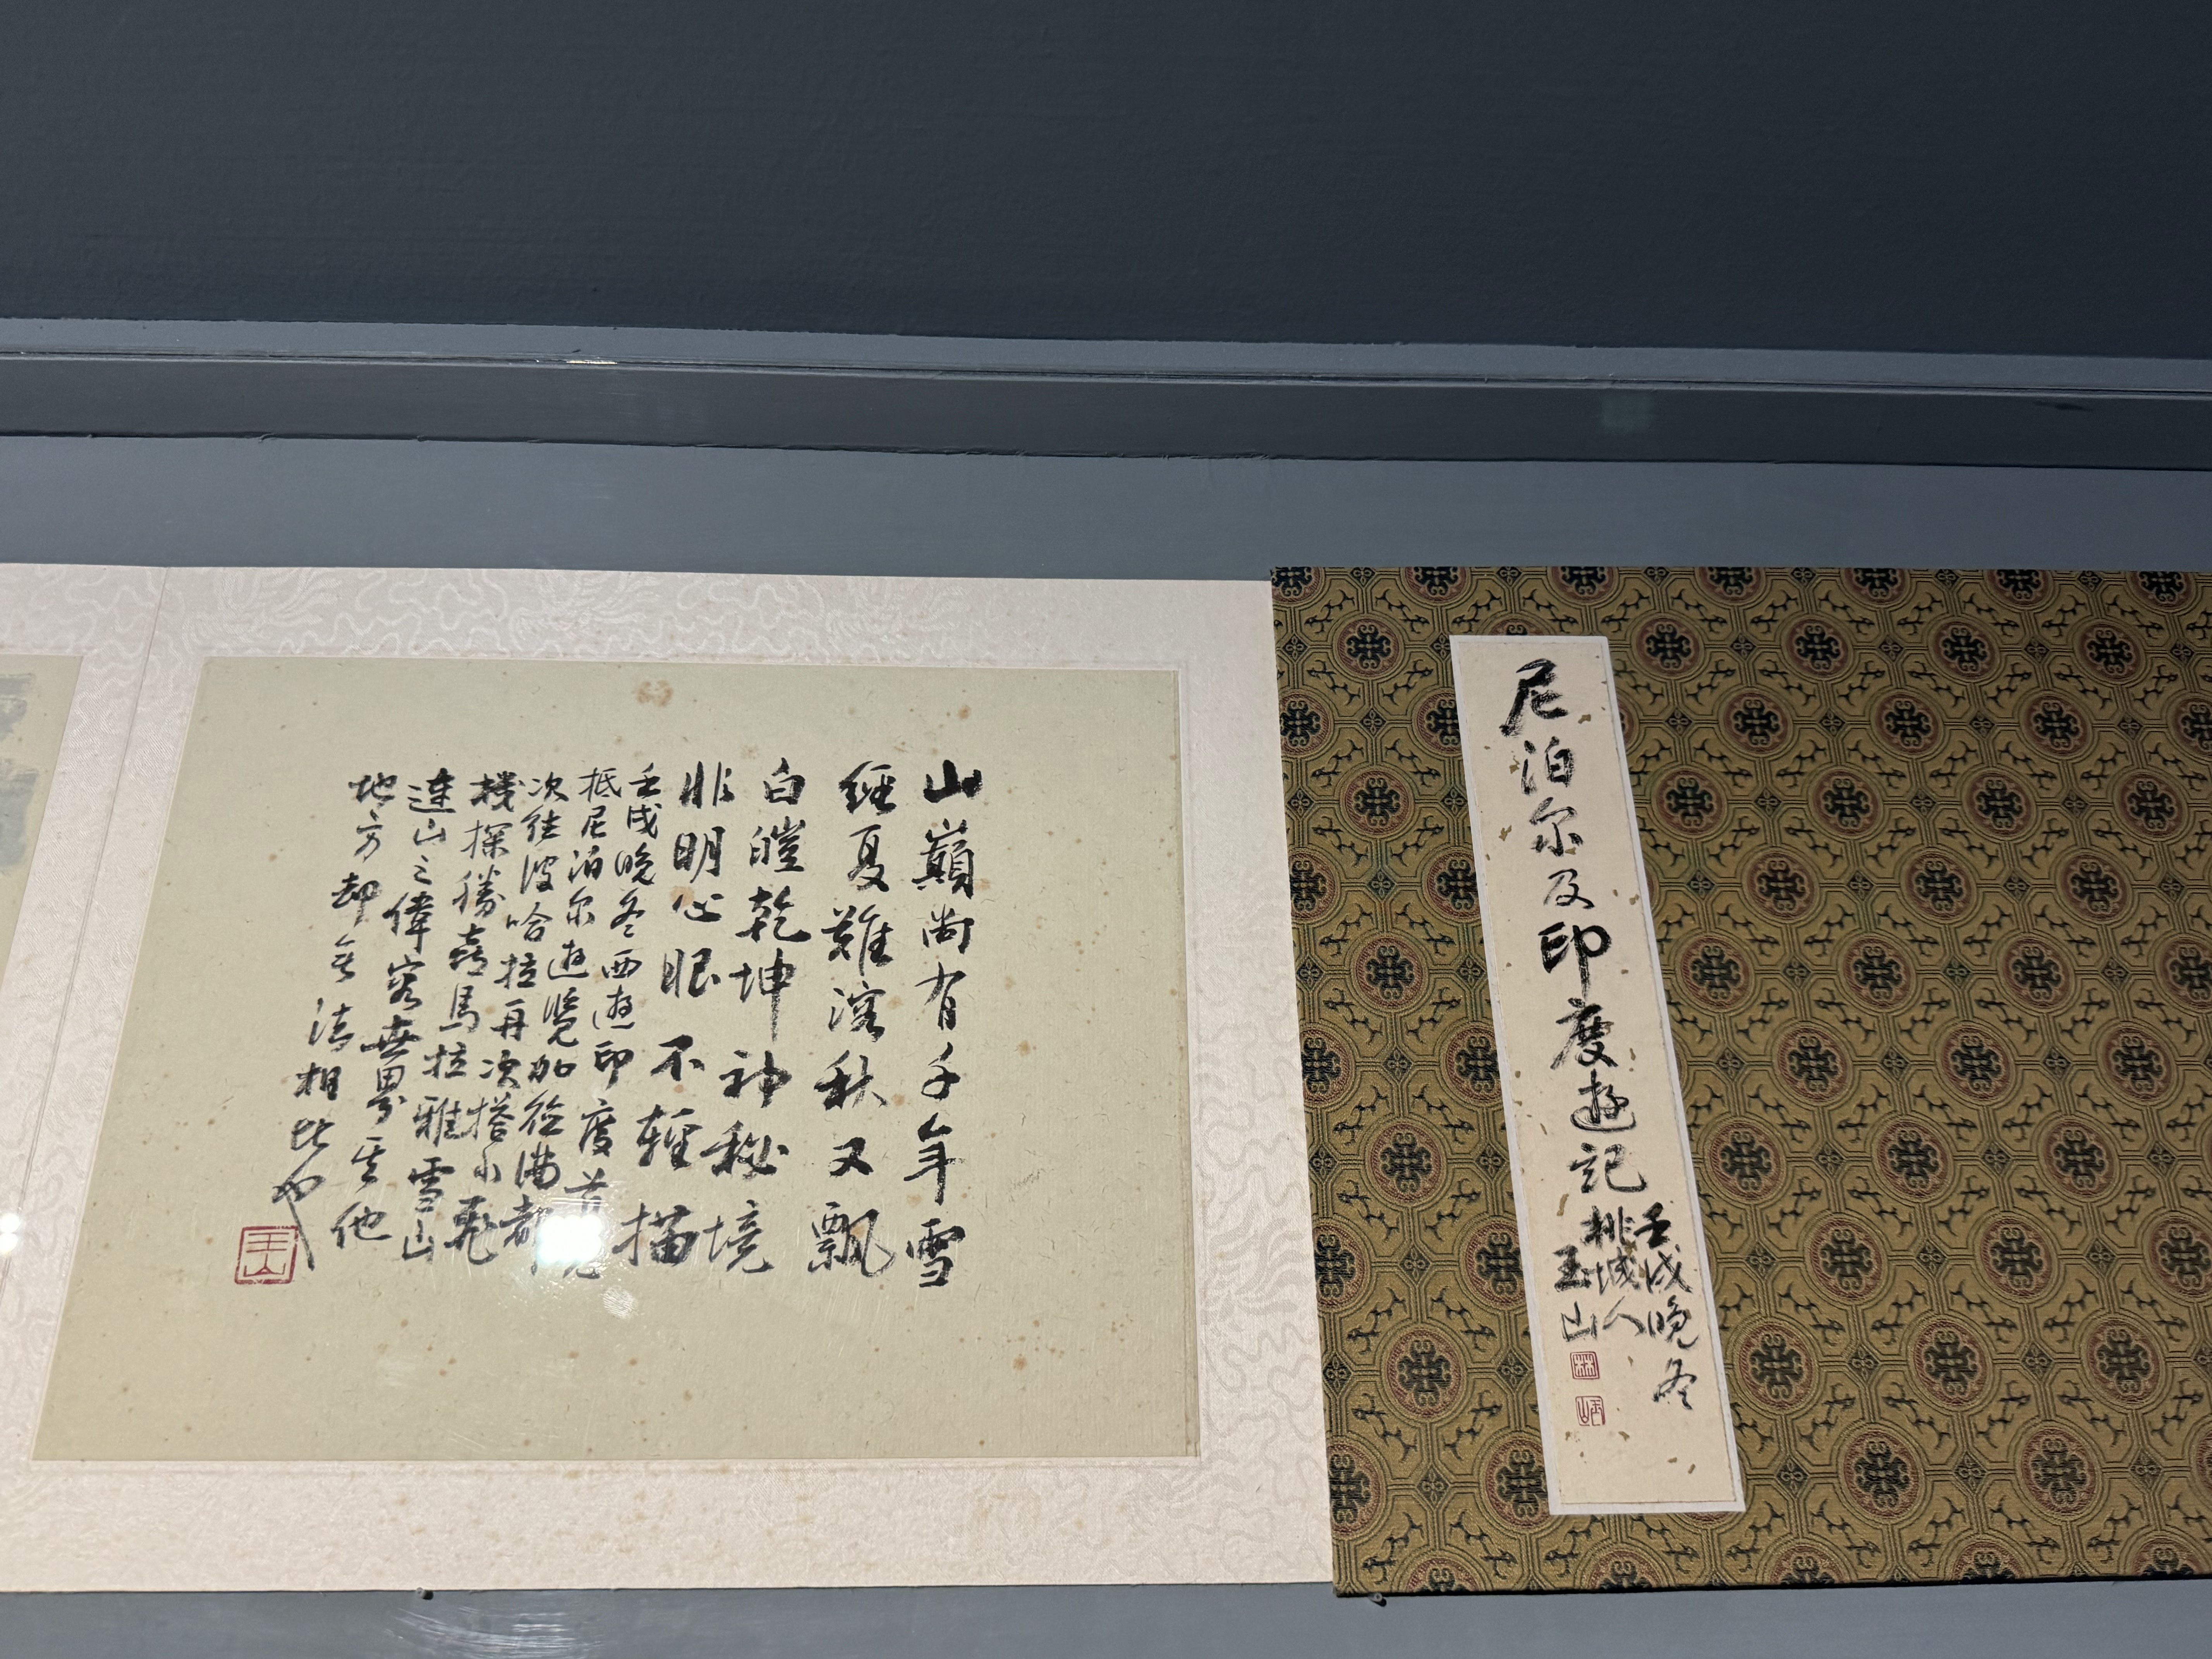 尼泊尔及印度遊記
壬戌晚冬
桃城人
玉山
林
玉山
山巔尚有千年雪
經夏難溶秋又飄
白皚乾坤神秘境
非明心眼不輕描
壬戌晚冬西遊印度
抵尼泊尔遊覽加德滿都
次往波哈拉再次搭小飛
機探勝喜馬拉雅雪山
連山之偉容無異其他
地方却無法相比也
玉山